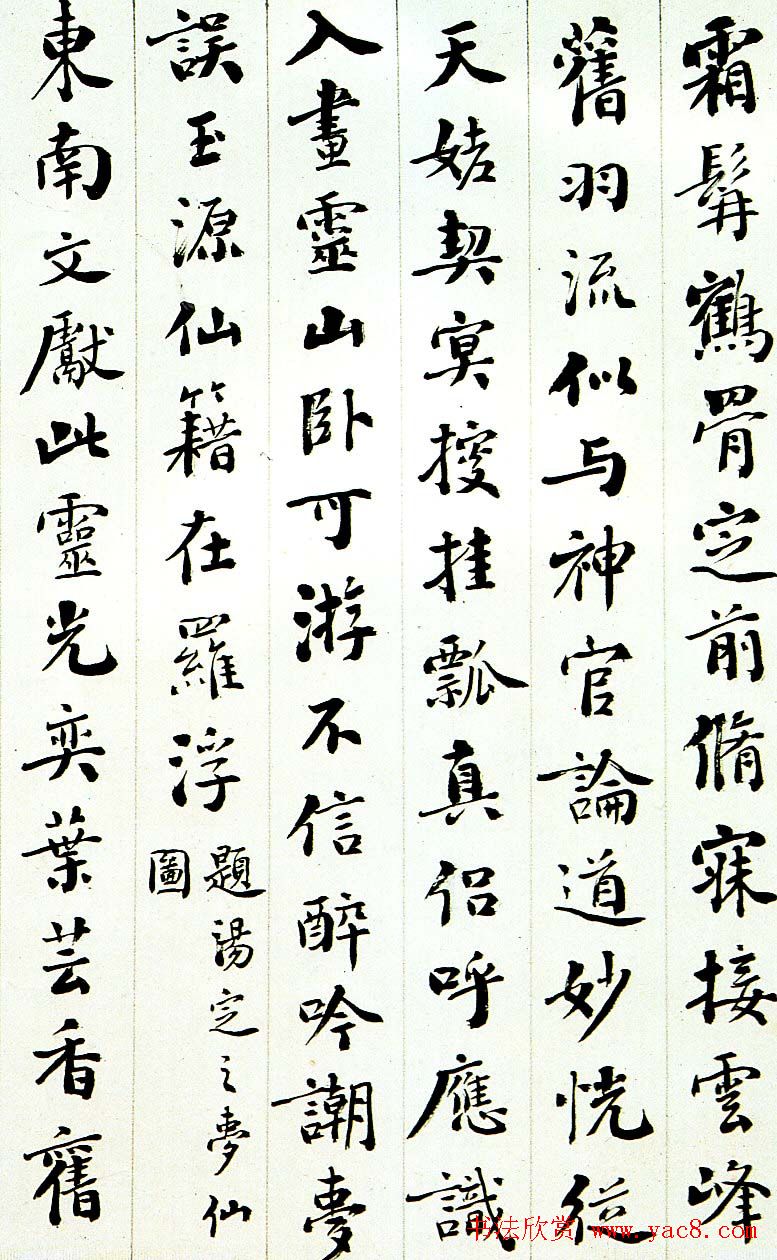 霜髯鶴骨定前脩寐接雲峰
舊羽流似与神官論道妙恍從
天姥契冥搜挂瓢真侣呼應識
入畫靈山卧可游不信醉吟謝夢
誤玉源仙籍在羅浮
題湯定之夢仙
圖
東南文獻此靈光奕葉芸香舊
书法欣赏 www.yac8.com